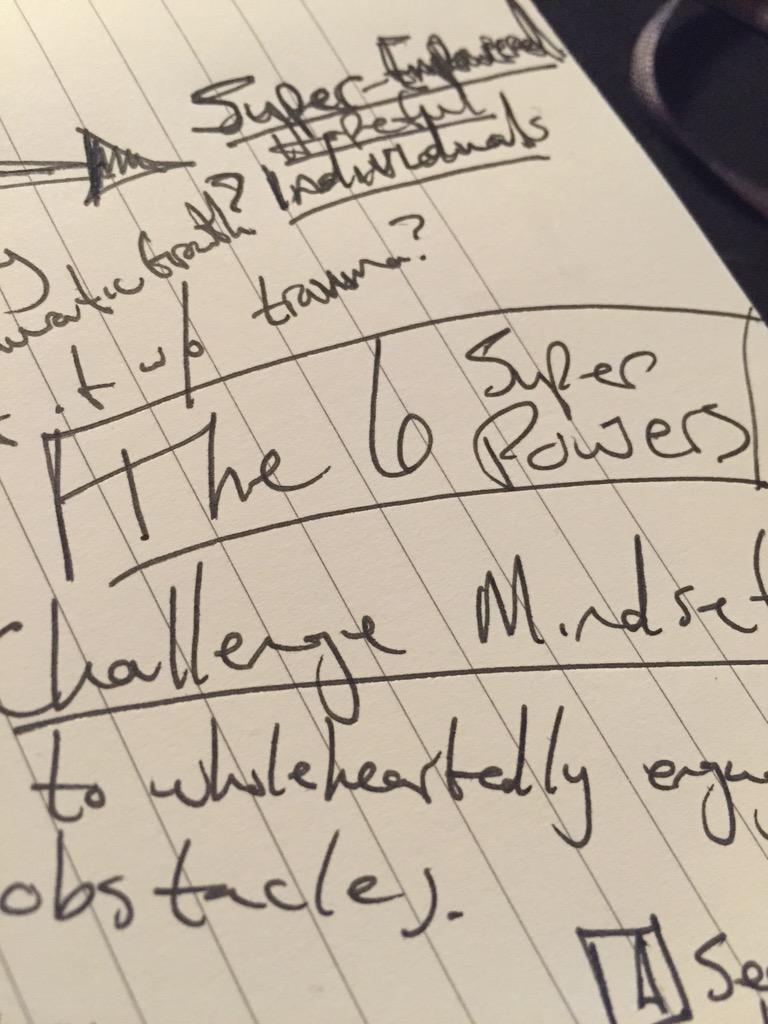 Super-Empowered
Hopeful
Individuals
matic Growth?
it w/o trauma?
The 6 Super
Powers
Challenge Mindset
to wholeheartedly engag
obstacles.
A Se